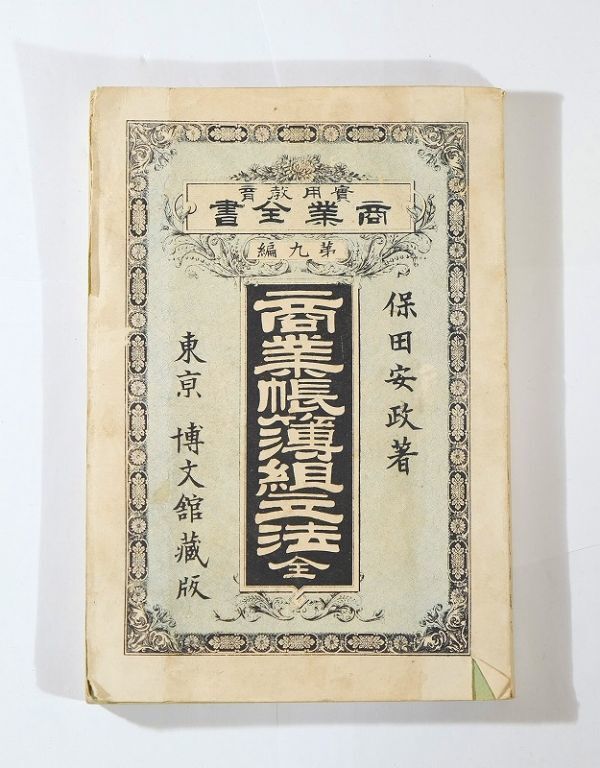 實用教育
商業全書
第九編
保田安政著
商業帳簿組立法 全
東亰 博文館藏版